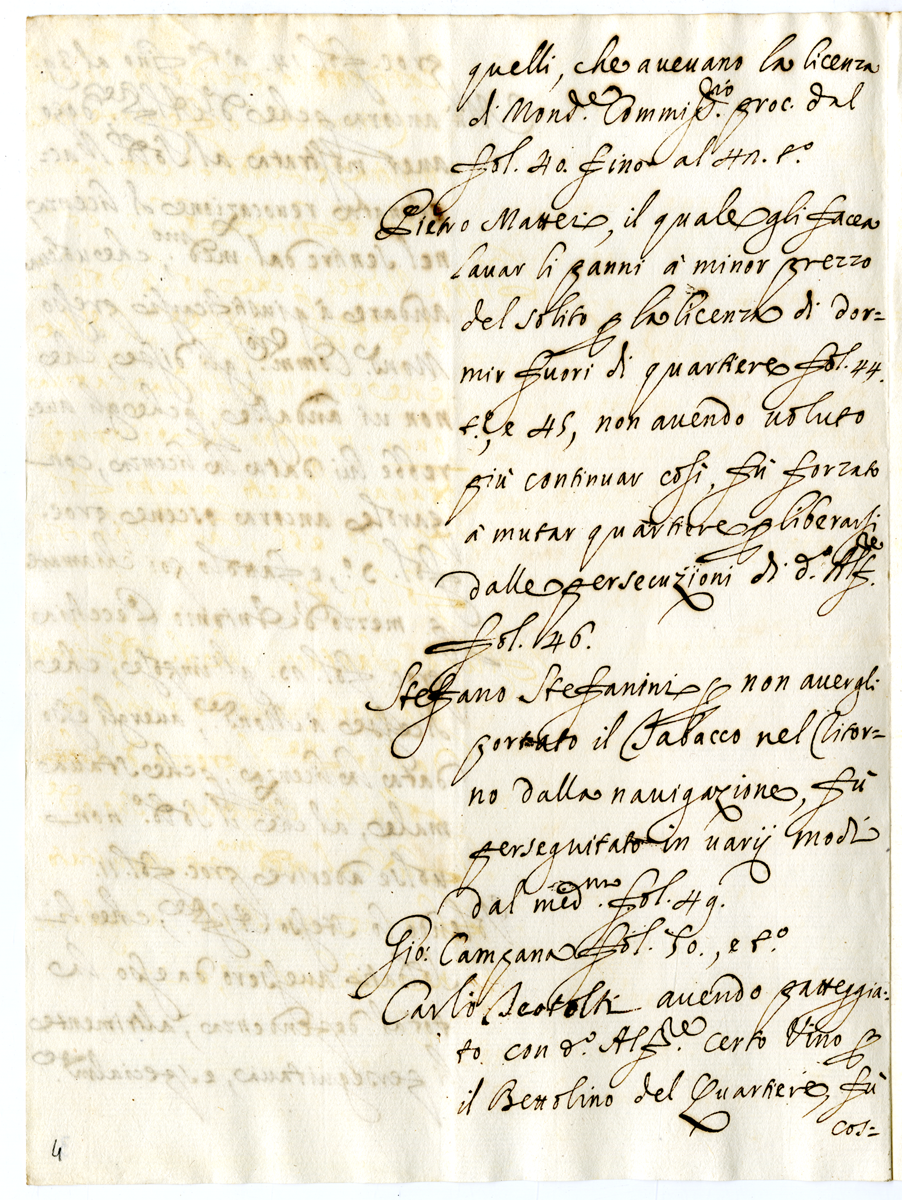 quelli, che avevano la licenza
di Mond.e Commiss.rio proc. dal
fol. 40. fino al 42. t.o
Pietro Mattei, il quale gli facea
lavar li panni à minor prezzo
del solito p la licenza di dor=
mir fuori di quartiere fol. 44.
t.o, e 45, non avendo voluto
più continuar così, fù forzato
à mutar quartiere p liberarsi
dalle persecuzioni di d.o Alf.re
fol. 46.
Stefano Stefanini p non avergli
portato il Tabacco nel ritor=
no dalla navigazione, fù
perseguitato in varij modi
dal med.mo fol. 49.
Gio: Campana fol. 50., e t.o
Carlo Bertolti avendo patteggia=
to con d.o Alf.re certo Vino p
il Bettolino del Quartiere, fù
cos=
4